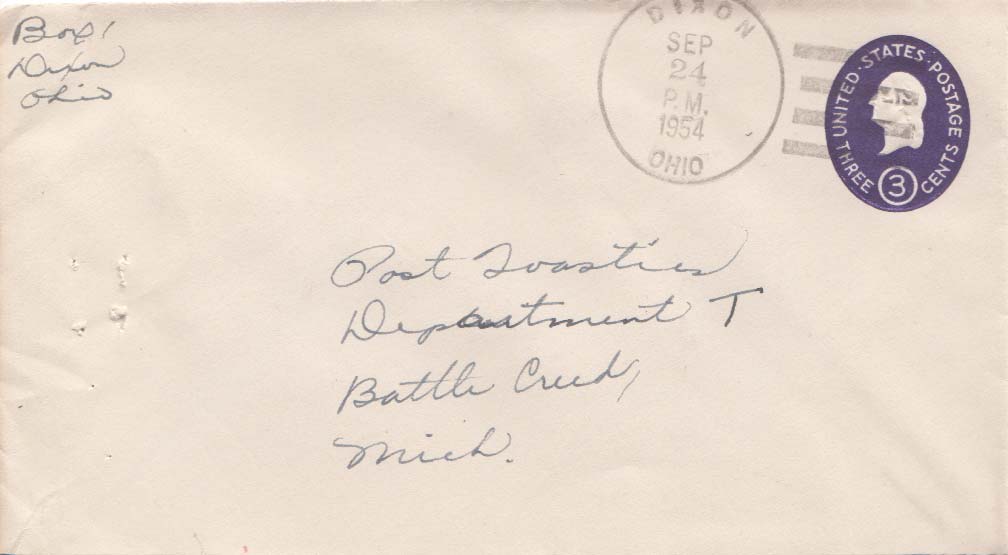 Box 1
Dixon
Ohio
DIXON
SEP
24
P.M.
1954
OHIO
UNITED · STATES · POSTAGE
THREE 3 CENTS
Post Toasties
Department T
Battle Creek,
Mich.